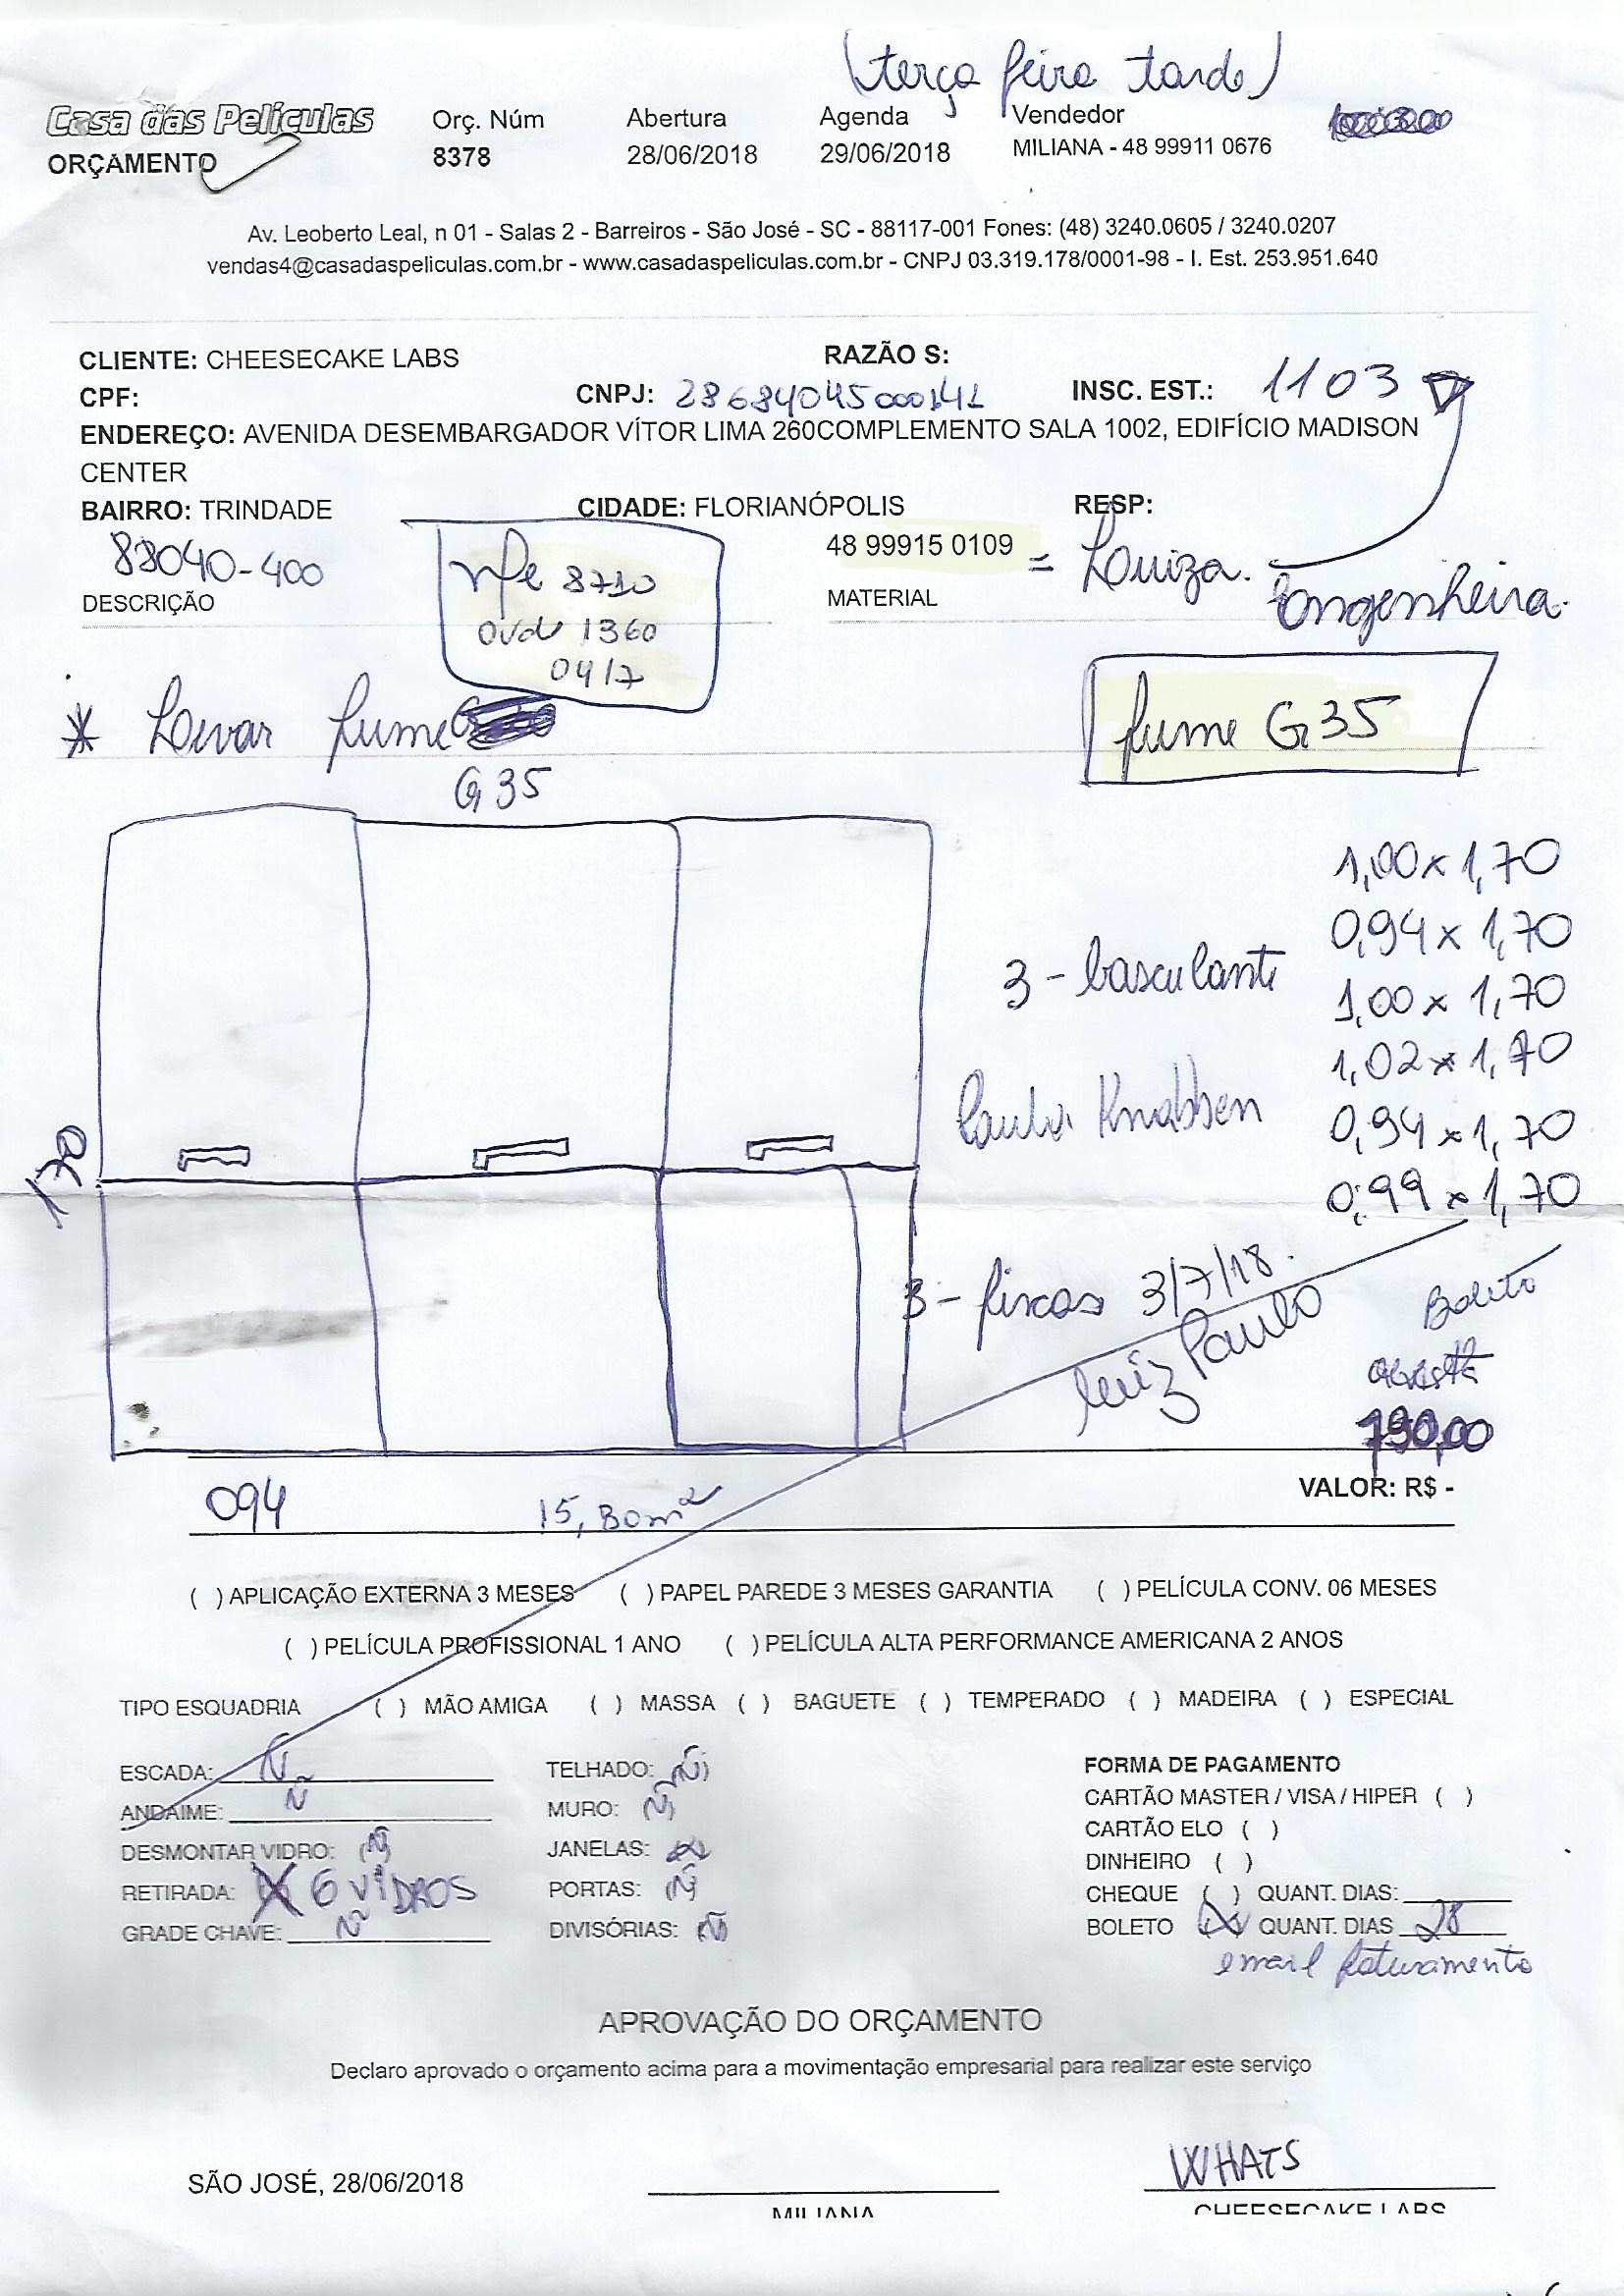 (terça feira tarde)
Casa das Películas
ORÇAMENTO
Orç. Núm
8378
Abertura
28/06/2018
Agenda
29/06/2018
Vendedor
MILIANA - 48 99911 0676
Av. Leoberto Leal, n 01 - Salas 2 - Barreiros - São José - SC - 88117-001 Fones: (48) 3240.0605 / 3240.0207
vendas4@casadaspeliculas.com.br - www.casadaspeliculas.com.br - CNPJ 03.319.178/0001-98 - I. Est. 253.951.640
CLIENTE: CHEESECAKE LABS RAZÃO S:
CPF: CNPJ: 28684045000141 INSC. EST.: 1103
ENDEREÇO: AVENIDA DESEMBARGADOR VÍTOR LIMA 260COMPLEMENTO SALA 1002, EDIFÍCIO MADISON
CENTER
BAIRRO: TRINDADE CIDADE: FLORIANÓPOLIS RESP:
88040-400
48 99915 0109 = Louiza.
Engenheira.
nfe 8710
1360
04/7
DESCRIÇÃO MATERIAL
* Levar fume
G35
fume G35
1,00 x 1,70
0,94 x 1,70
3 - basculante
1,00 x 1,70
1,02 x 1,70
Knabben
0,94 x 1,70
0,99 x 1,70
1,70
3 - fixas 3/7/18.
Luiz Paulo
Boleto
790,00
VALOR: R$ -
094
( ) APLICAÇÃO EXTERNA 3 MESES ( ) PAPEL PAREDE 3 MESES GARANTIA ( ) PELÍCULA CONV. 06 MESES
( ) PELÍCULA PROFISSIONAL 1 ANO ( ) PELÍCULA ALTA PERFORMANCE AMERICANA 2 ANOS
TIPO ESQUADRIA ( ) MÃO AMIGA ( ) MASSA ( ) BAGUETE ( ) TEMPERADO ( ) MADEIRA ( ) ESPECIAL
ESCADA: Ñ TELHADO: (Ñ) FORMA DE PAGAMENTO
ANDAIME: Ñ MURO: (Ñ) CARTÃO MASTER / VISA / HIPER ( )
DESMONTAR VIDRO: (Ñ) JANELAS: (x) CARTÃO ELO ( )
DINHEIRO ( )
RETIRADA: (X) 6 VIDROS PORTAS: (Ñ) CHEQUE ( ) QUANT. DIAS:
GRADE CHAVE: Ñ DIVISÓRIAS: (Ñ) BOLETO (X) QUANT. DIAS 28
email faturamento
APROVAÇÃO DO ORÇAMENTO
Declaro aprovado o orçamento acima para a movimentação empresarial para realizar este serviço
WHATS
SÃO JOSÉ, 28/06/2018
MILIANA CHEESECAKE LABS